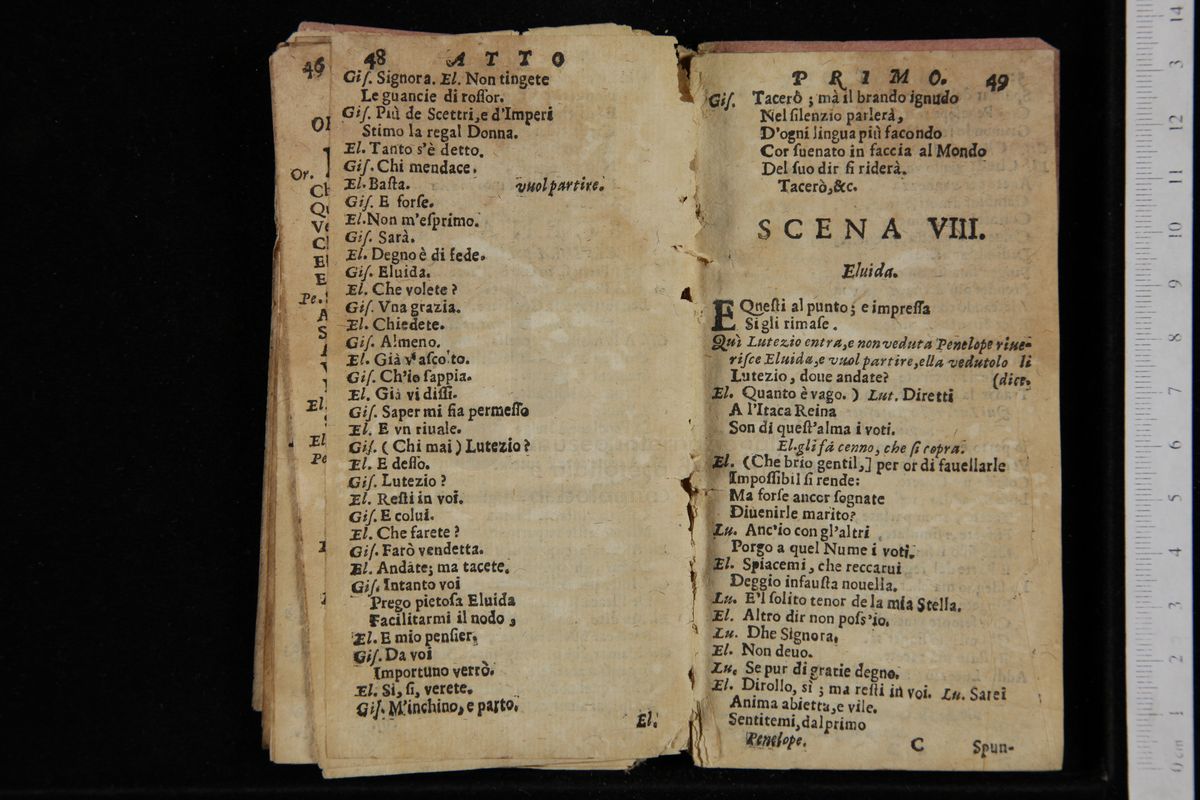 46
Or.
Pe.
El.
El
Pe
48 ATTO
Giſ. Signora. El. Non tingete
Le guancie di roſſor.
Giſ. Più de Scettri, e d'Imperi
Stimo la regal Donna.
El. Tanto s'è detto.
Giſ. Chi mendace.
El. Baſta. vuol partire.
Giſ. E forſe.
El. Non m'eſprimo.
Giſ. Sarà.
El. Degno è di fede.
Giſ. Eluida.
El. Che volete?
Giſ. Vna grazia.
El. Chiedete.
Giſ. Almeno.
El. Già v'aſcolto.
Giſ. Ch'io ſappia.
El. Già vi diſſi.
Giſ. Saper mi ſia permeſſo
El. E vn riuale.
Giſ. (Chi mai) Lutezio?
El. E deſſo.
Giſ. Lutezio?
El. Reſti in voi.
Giſ. E colui.
El. Che farete?
Giſ. Farò vendetta.
El. Andate; ma tacete.
Giſ. Intanto voi
Prego pietoſa Eluida
Facilitarmi il nodo,
El. E mio penſier.
Giſ. Da voi
Importuno verrò.
El. Si, ſi, verete.
Giſ. M'inchino, e parto.
El.
PRIMO. 49
Giſ. Tacerò; mà il brando ignudo
Nel ſilenzio parlerà,
D'ogni lingua più facondo
Cor ſuenato in faccia al Mondo
Del ſuo dir ſi riderà.
Tacerò, &c.
SCENA VIII.
Eluida.
E Queſti al punto; e impreſſa
Si gli rimaſe.
Quì Lutezio entra, e non veduta Penelope riue-
riſce Eluida, e vuol partire, ella vedutolo li
Lutezio, doue andate? (dice.
El. Quanto è vago. ) Lut. Diretti
A l'Itaca Reina
Son di queſt'alma i voti.
El. gli fà cenno, che ſi copra.
El. (Che brio gentil,] per or di fauellarle
Impoſſibil ſi rende:
Ma forſe ancor ſognate
Diuenirle marito?
Lu. Anc'io con gl'altri
Porgo a quel Nume i voti.
El. Spiacemi, che reccarui
Deggio infauſta nouella.
Lu. E'l ſolito tenor de la mia Stella.
El. Altro dir non poſs'io.
Lu. Dhe Signora.
El. Non deuo.
Lu. Se pur di gratie degno.
El. Dirollo, sì; ma reſti in voi. Lu. Sarei
Anima abietta, e vile.
Sentitemi, dal primo
Penelope. C Spun-